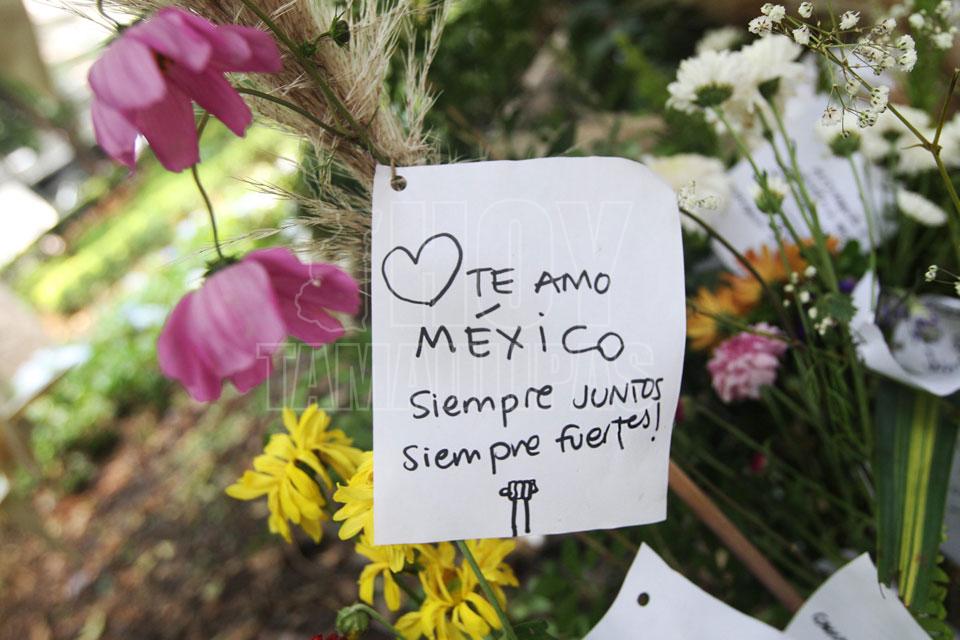 HOY
TAMAULIPAS
TE AMO
MÉXICO
Siempre JUNTOS
siempre fuertes!